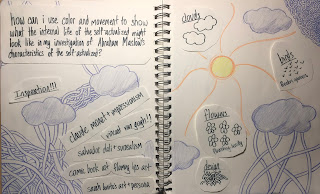 How can i use color and movement to show
what the internal life of the self-actualized might
look like in my investigation of Abraham Maslow's
characteristics of the self actualized?
Inspiration!!!
claude monet + impressionism
vincent van gogh!!
salvador dali + surrealism
comic book art flaming lips art
sarah art + persona
clouds
birds
flowers